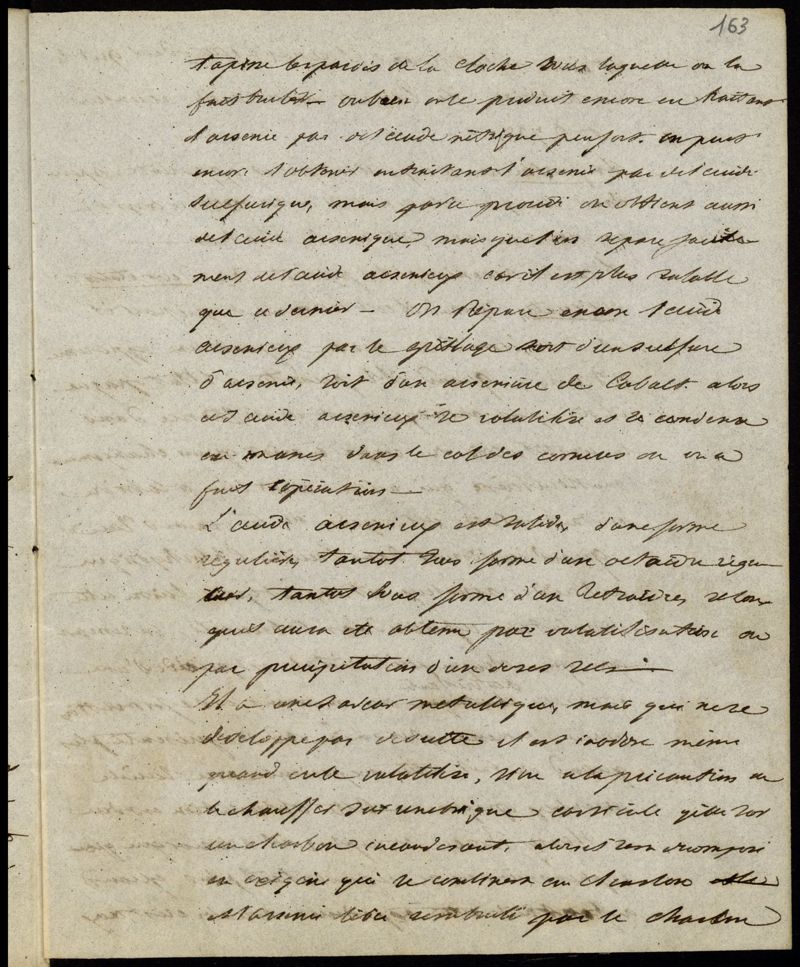 163
tapisse les parois de la cloche sous laquelle on la
fait bruler — ou bien on le produit encore en traitant
l'arsenic par de l'acide nitrique peu fort. on peut
encore l'obtenir en traitant l'arsenic par de l'acide
sulfurique, mais par ce procédé on obtient aussi
de l'acide arsenique, mais que l'on separe facile-
ment de l'acide arsenieux car il est plus soluble
que ce dernier — On prepare encore l'acide
arsenieux par le grillage soit d'un sulfure
d'arsenic, soit d'un arseniure de Cobalt. alors
cet acide arsenieux se volatilise et se condense
en masses dans le col des cornues ou on a
fait l'opération —
L'acide arsenieux est solide, d'une forme
régulière, tantot sous forme d'un octaedre régu-
lier, tantot sous forme d'un tetraedre, selon
qu'il aura été obtenu par volatilisation ou
par precipitation d'un de ses sels —
Il a une saveur metallique, mais qui ne se
developpe pas de suite il est inodore même
quand on le volatilise, si on a la précaution de
le chauffer sur une brique car si
un charbon incandescent. alors il est decomposé
en oxigène qui se combine au charbon
et l'arsenic libre par le charbon